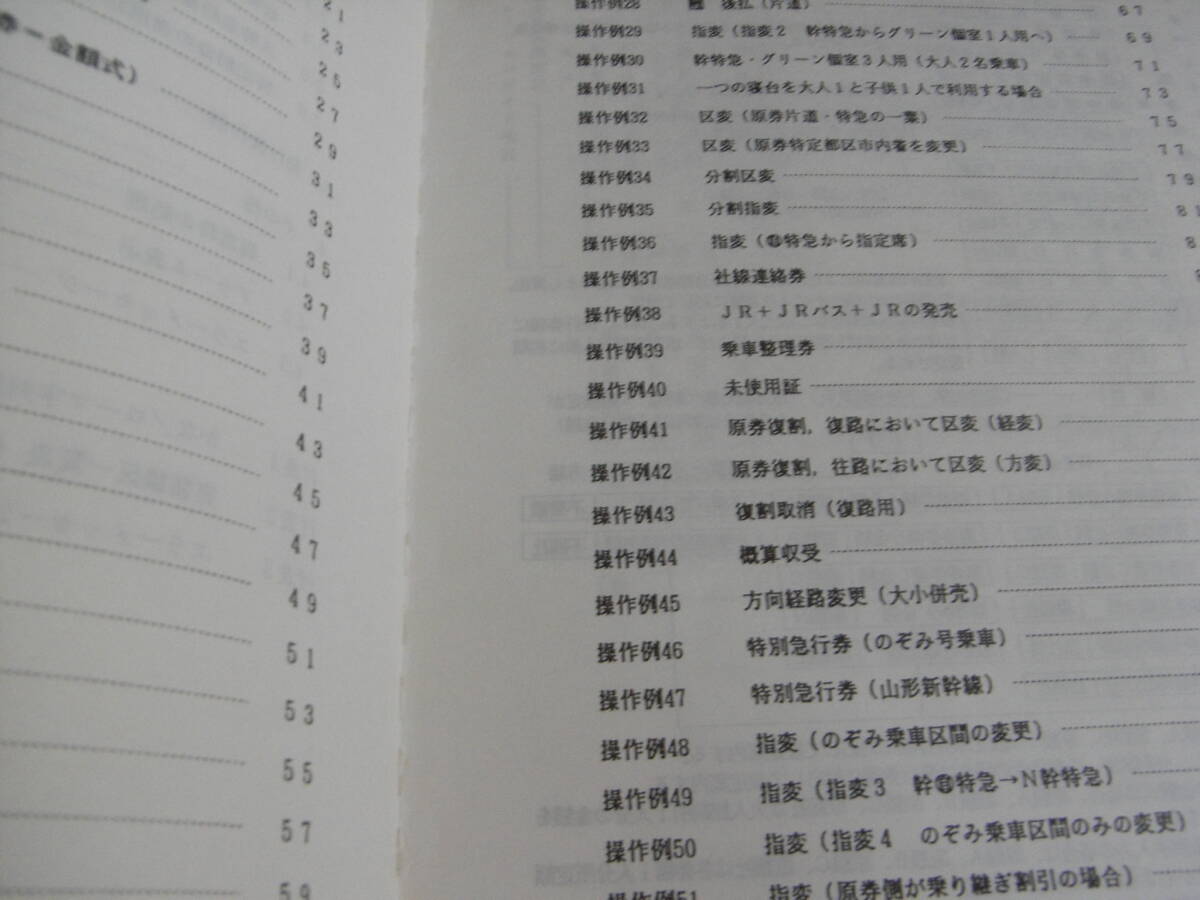 券－金額式）
21
23
25
27
29
31
33
35
37
39
41
43
45
47
49
51
53
55
57
59
操作例28 後払（片道） 67
操作例29 指変（指変２　幹特急からグリーン個室１人用へ） 69
操作例30 幹特急・グリーン個室３人用（大人２名乗車） 71
操作例31 一つの寝台を大人１と子供１人で利用する場合 73
操作例32 区変（原券片道・特急の一葉） 75
操作例33 区変（原券特定都区市内着を変更） 77
操作例34 分割区変 79
操作例35 分割指変 81
操作例36 指変（㊂特急から指定席） 8
操作例37 社線連絡券 8
操作例38 ＪＲ＋ＪＲバス＋ＪＲの発売
操作例39 乗車整理券
操作例40 未使用証
操作例41 原券復割，復路において区変（経変）
操作例42 原券復割，往路において区変（方変）
操作例43 復割取消（復路用）
操作例44 概算収受
操作例45 方向経路変更（大小併売）
操作例46 特別急行券（のぞみ号乗車）
操作例47 特別急行券（山形新幹線）
操作例48 指変（のぞみ乗車区間の変更）
操作例49 指変（指変３　幹㊂特急→Ｎ幹特急）
操作例50 指変（指変４　のぞみ乗車区間のみの変更）
操作例51 指変（原券側が乗り継ぎ割引の場合）